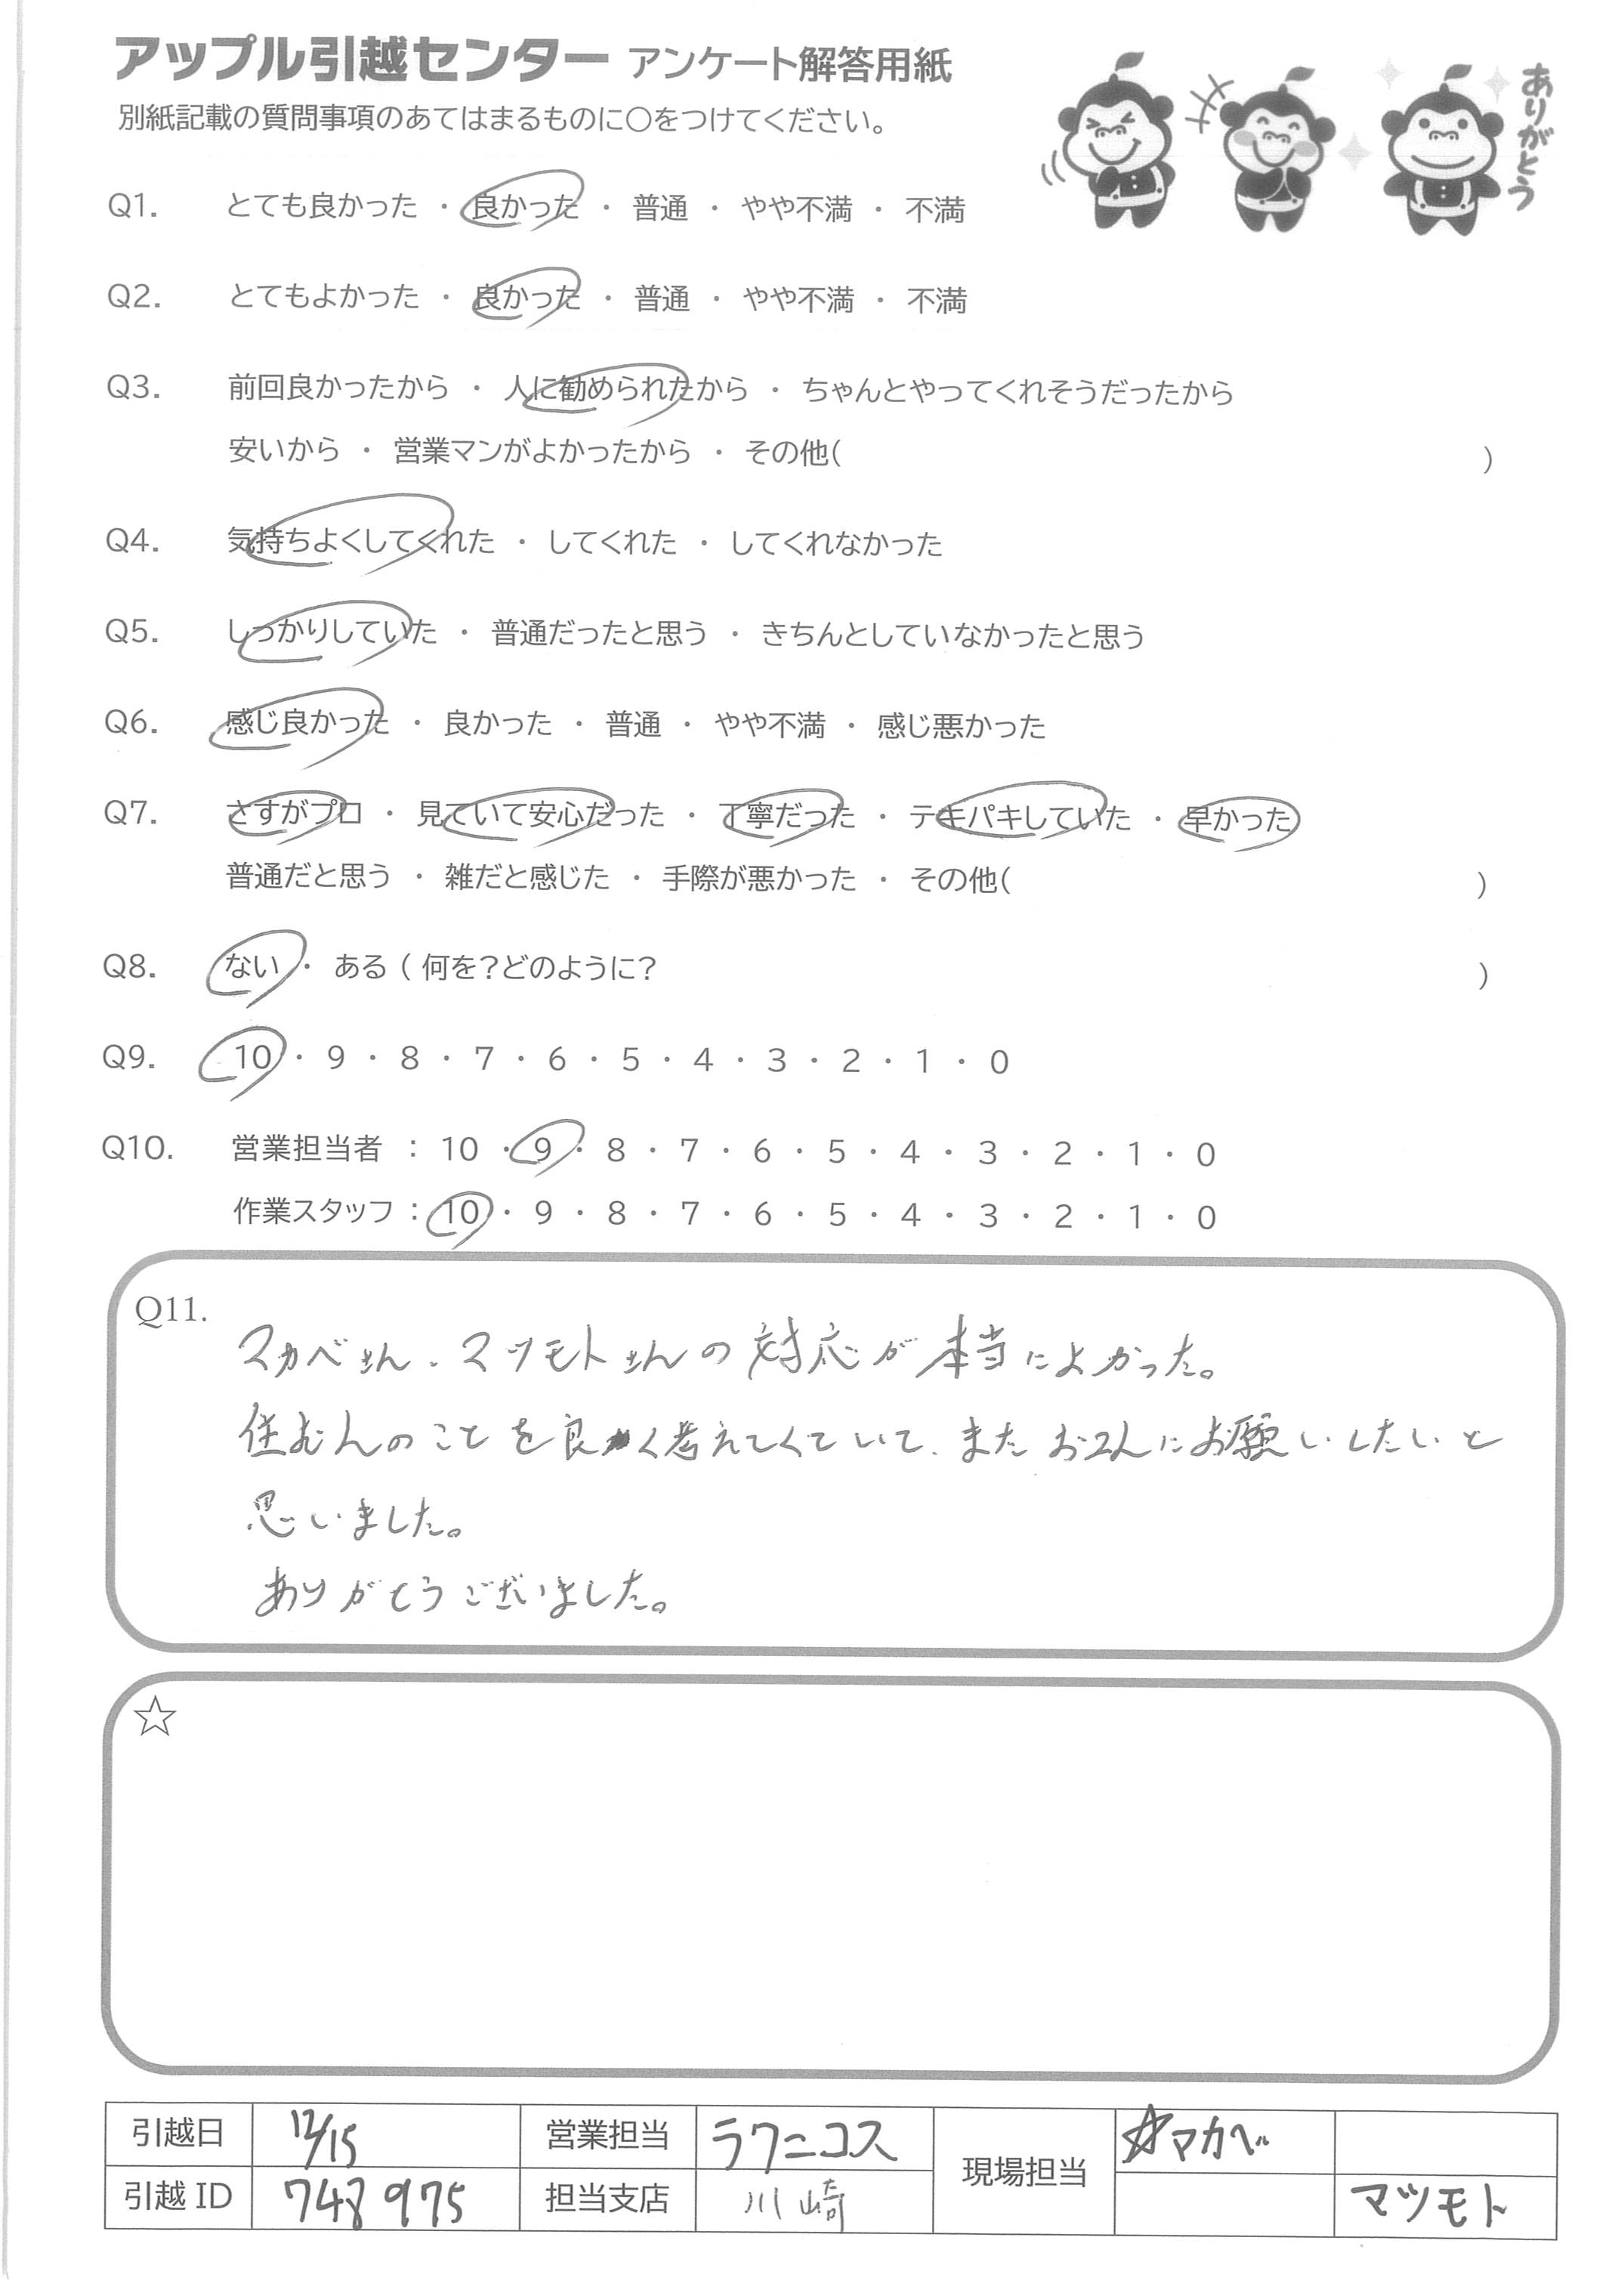 アップル引越センター アンケート解答用紙
別紙記載の質問事項のあてはまるものに○をつけてください。
ありがとう
Q1. とても良かった ・ 良かった ・ 普通 ・ やや不満 ・ 不満
Q2. とてもよかった ・ 良かった ・ 普通 ・ やや不満 ・ 不満
Q3. 前回良かったから ・ 人に勧められたから ・ ちゃんとやってくれそうだったから
安いから ・ 営業マンがよかったから ・ その他( )
Q4. 気持ちよくしてくれた ・ してくれた ・ してくれなかった
Q5. しっかりしていた ・ 普通だったと思う ・ きちんとしていなかったと思う
Q6. 感じ良かった ・ 良かった ・ 普通 ・ やや不満 ・ 感じ悪かった
Q7. さすがプロ ・ 見ていて安心だった ・ 丁寧だった ・ テキパキしていた ・ 早かった
普通だと思う ・ 雑だと感じた ・ 手際が悪かった ・ その他( )
Q8. ない ・ ある ( 何を?どのように? )
Q9. 10 ・ 9 ・ 8 ・ 7 ・ 6 ・ 5 ・ 4 ・ 3 ・ 2 ・ 1 ・ 0
Q10. 営業担当者 : 10 ・ 9 ・ 8 ・ 7 ・ 6 ・ 5 ・ 4 ・ 3 ・ 2 ・ 1 ・ 0
作業スタッフ : 10 ・ 9 ・ 8 ・ 7 ・ 6 ・ 5 ・ 4 ・ 3 ・ 2 ・ 1 ・ 0
Q11.
マカベさん、マツモトさんの対応が本当によかった。
のことを良く考えてくれていて、またお2人にお願いしたいと
思いました。
ありがとうございました。
☆
引越日 12/15 営業担当 ラワニコス 現場担当 ☆マカベ
引越 ID 748975 担当支店 川崎 マツモト